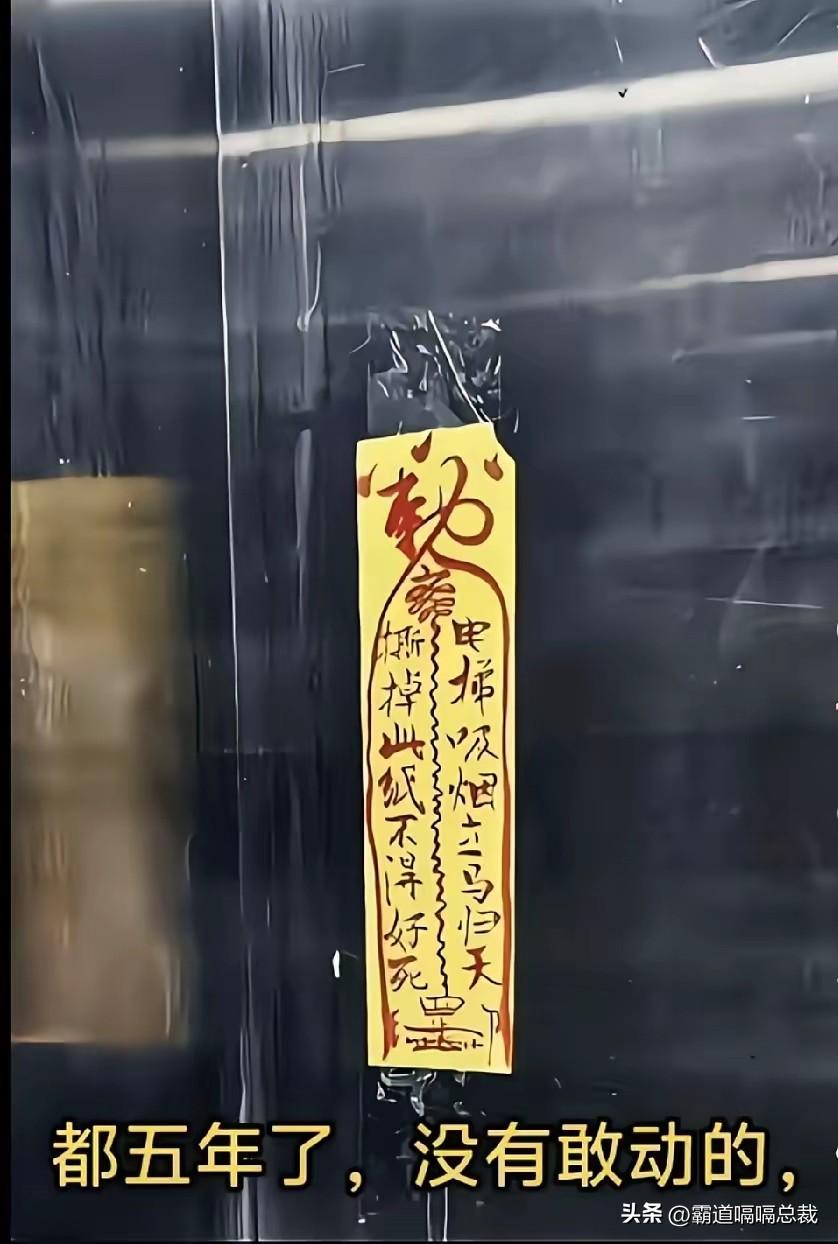 敕
电梯吸烟立马归天
撕掉此纸不得好死
都五年了，没有敢动的，
头条 @霸道嗝嗝总裁